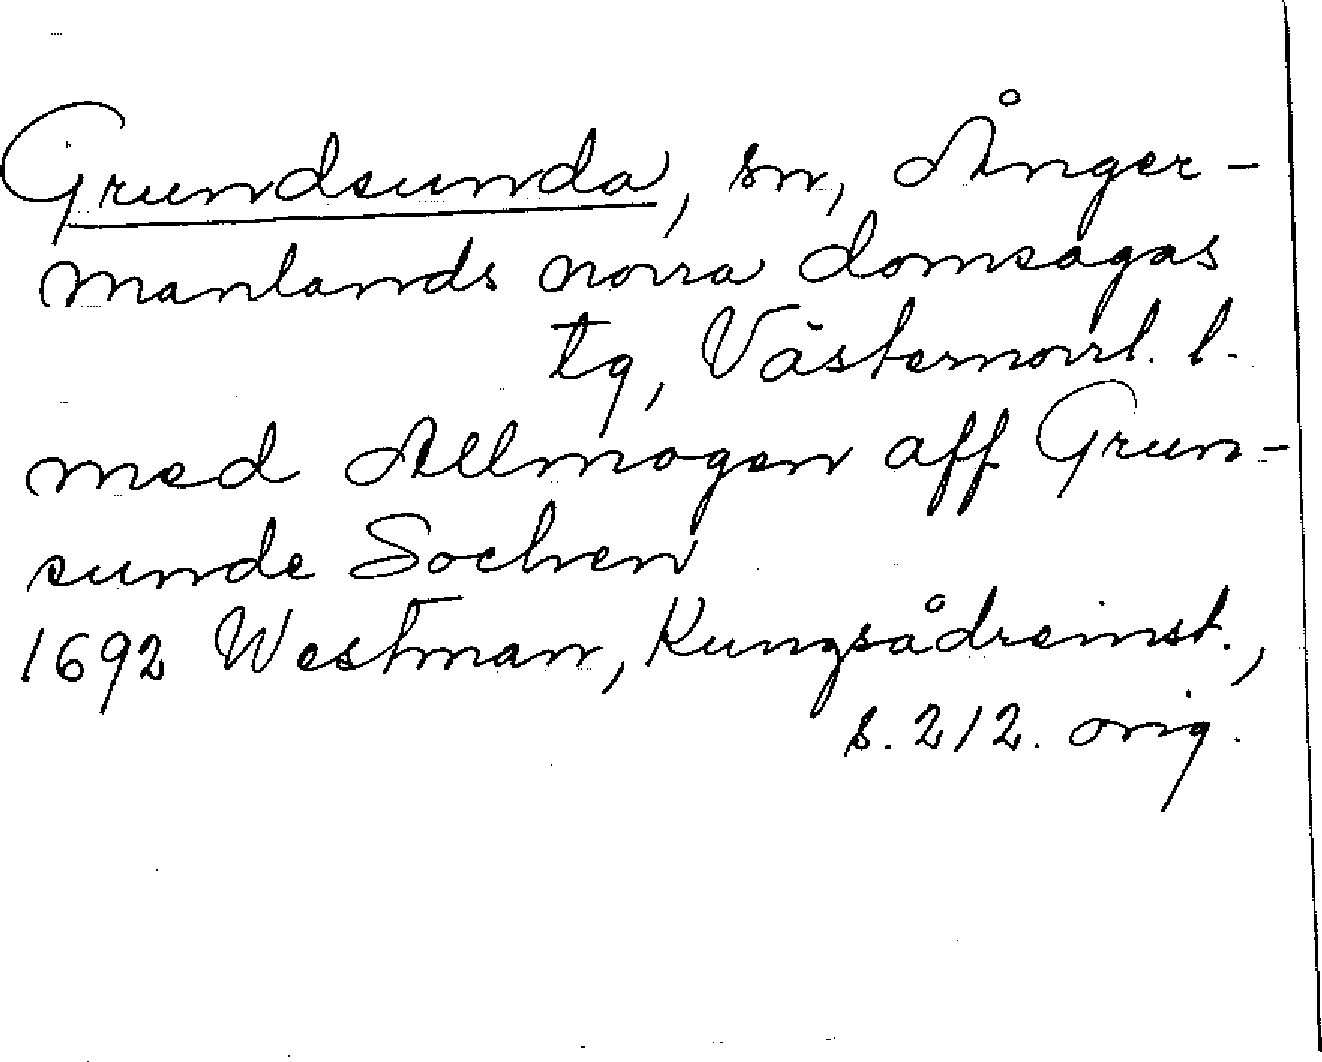 Grundsunda, sn, Ånger-
manlands norra domsagas
tg, Västernorrl. l.
med Allmogen aff Grun-
sunde Sochen
1692 Westman, Kungsådreinst.,
s. 212. orig.